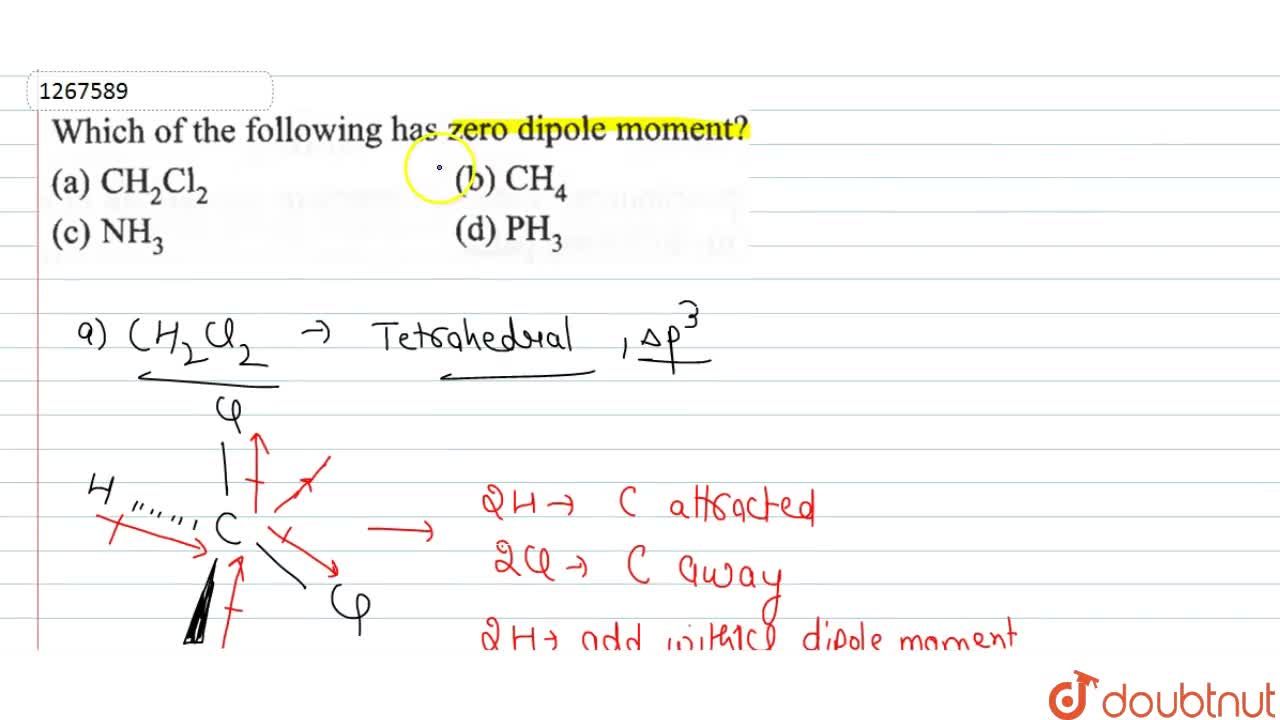 1267589
Which of the following has zero dipole moment?
(a) CH₂Cl₂ (b) CH₄
(c) NH₃ (d) PH₃
a) CH₂Cl₂ → Tetrahedral , sp³
Cl
H
C
Cl
2H → C attracted
2Cl → C away
2H → add with 2Cl dipole moment
doubtnut